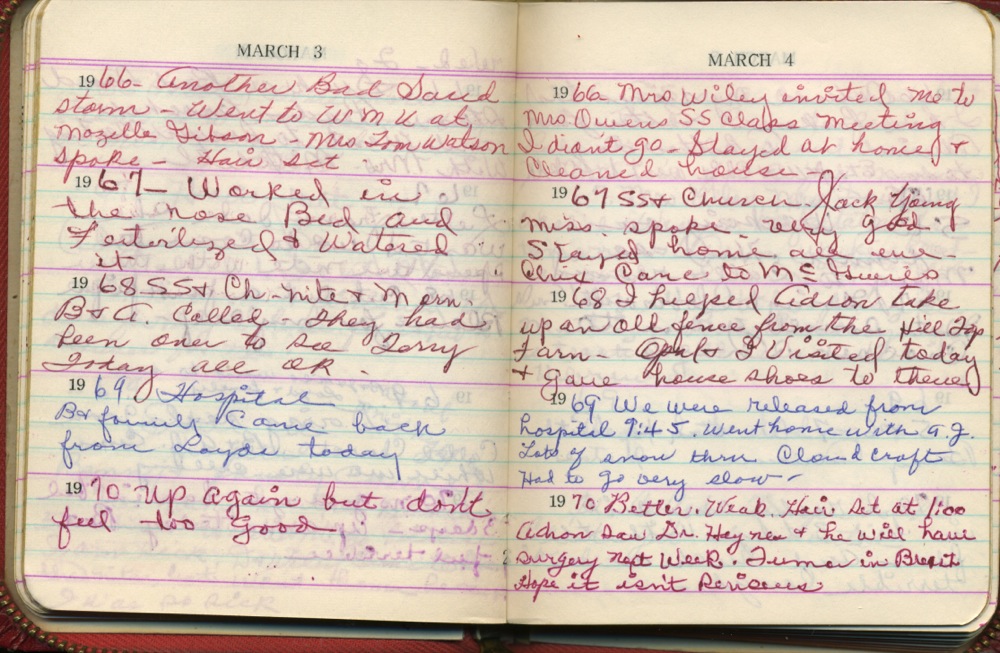 MARCH 3
1966- Another Bad Sand
storm - Went to W M U at
Mozelle Gibson - Mrs Tom Watson
spoke - Hair set
1967- Worked in
the rose Bed and
Ferterlized & Watered
it
1968 SS & Ch - nite & Morn.
B & A. Called - They had
been over to see Terry
Today all OK.
1969. Hospital
B & family Came back
from Loyds today
1970 Up again but don't
feel too good
MARCH 4
1966 Mrs Wiley invited me to
Mrs Owens SS Class Meeting
I didnt go - Stayed at home &
Cleaned house -
1967 SS & Church. Jack Young
Miss. spoke - very good.
Stayed home all eve -
Chris Came to Mc
1968 I helped Adron take
up an old fence from the Hill Top
Farm - & I Visited today
& gave house shoes to
1969 We were released from
hospital 9:45. Went home with A.J.
Lots of snow thru Cloud Craft
Had to go very slow -
1970 Better. Weak. Hair set at 1:00
Adron saw Dr. Haynes & he will have
surgery next Week. Tumor in Breast
Hope it isn't serious